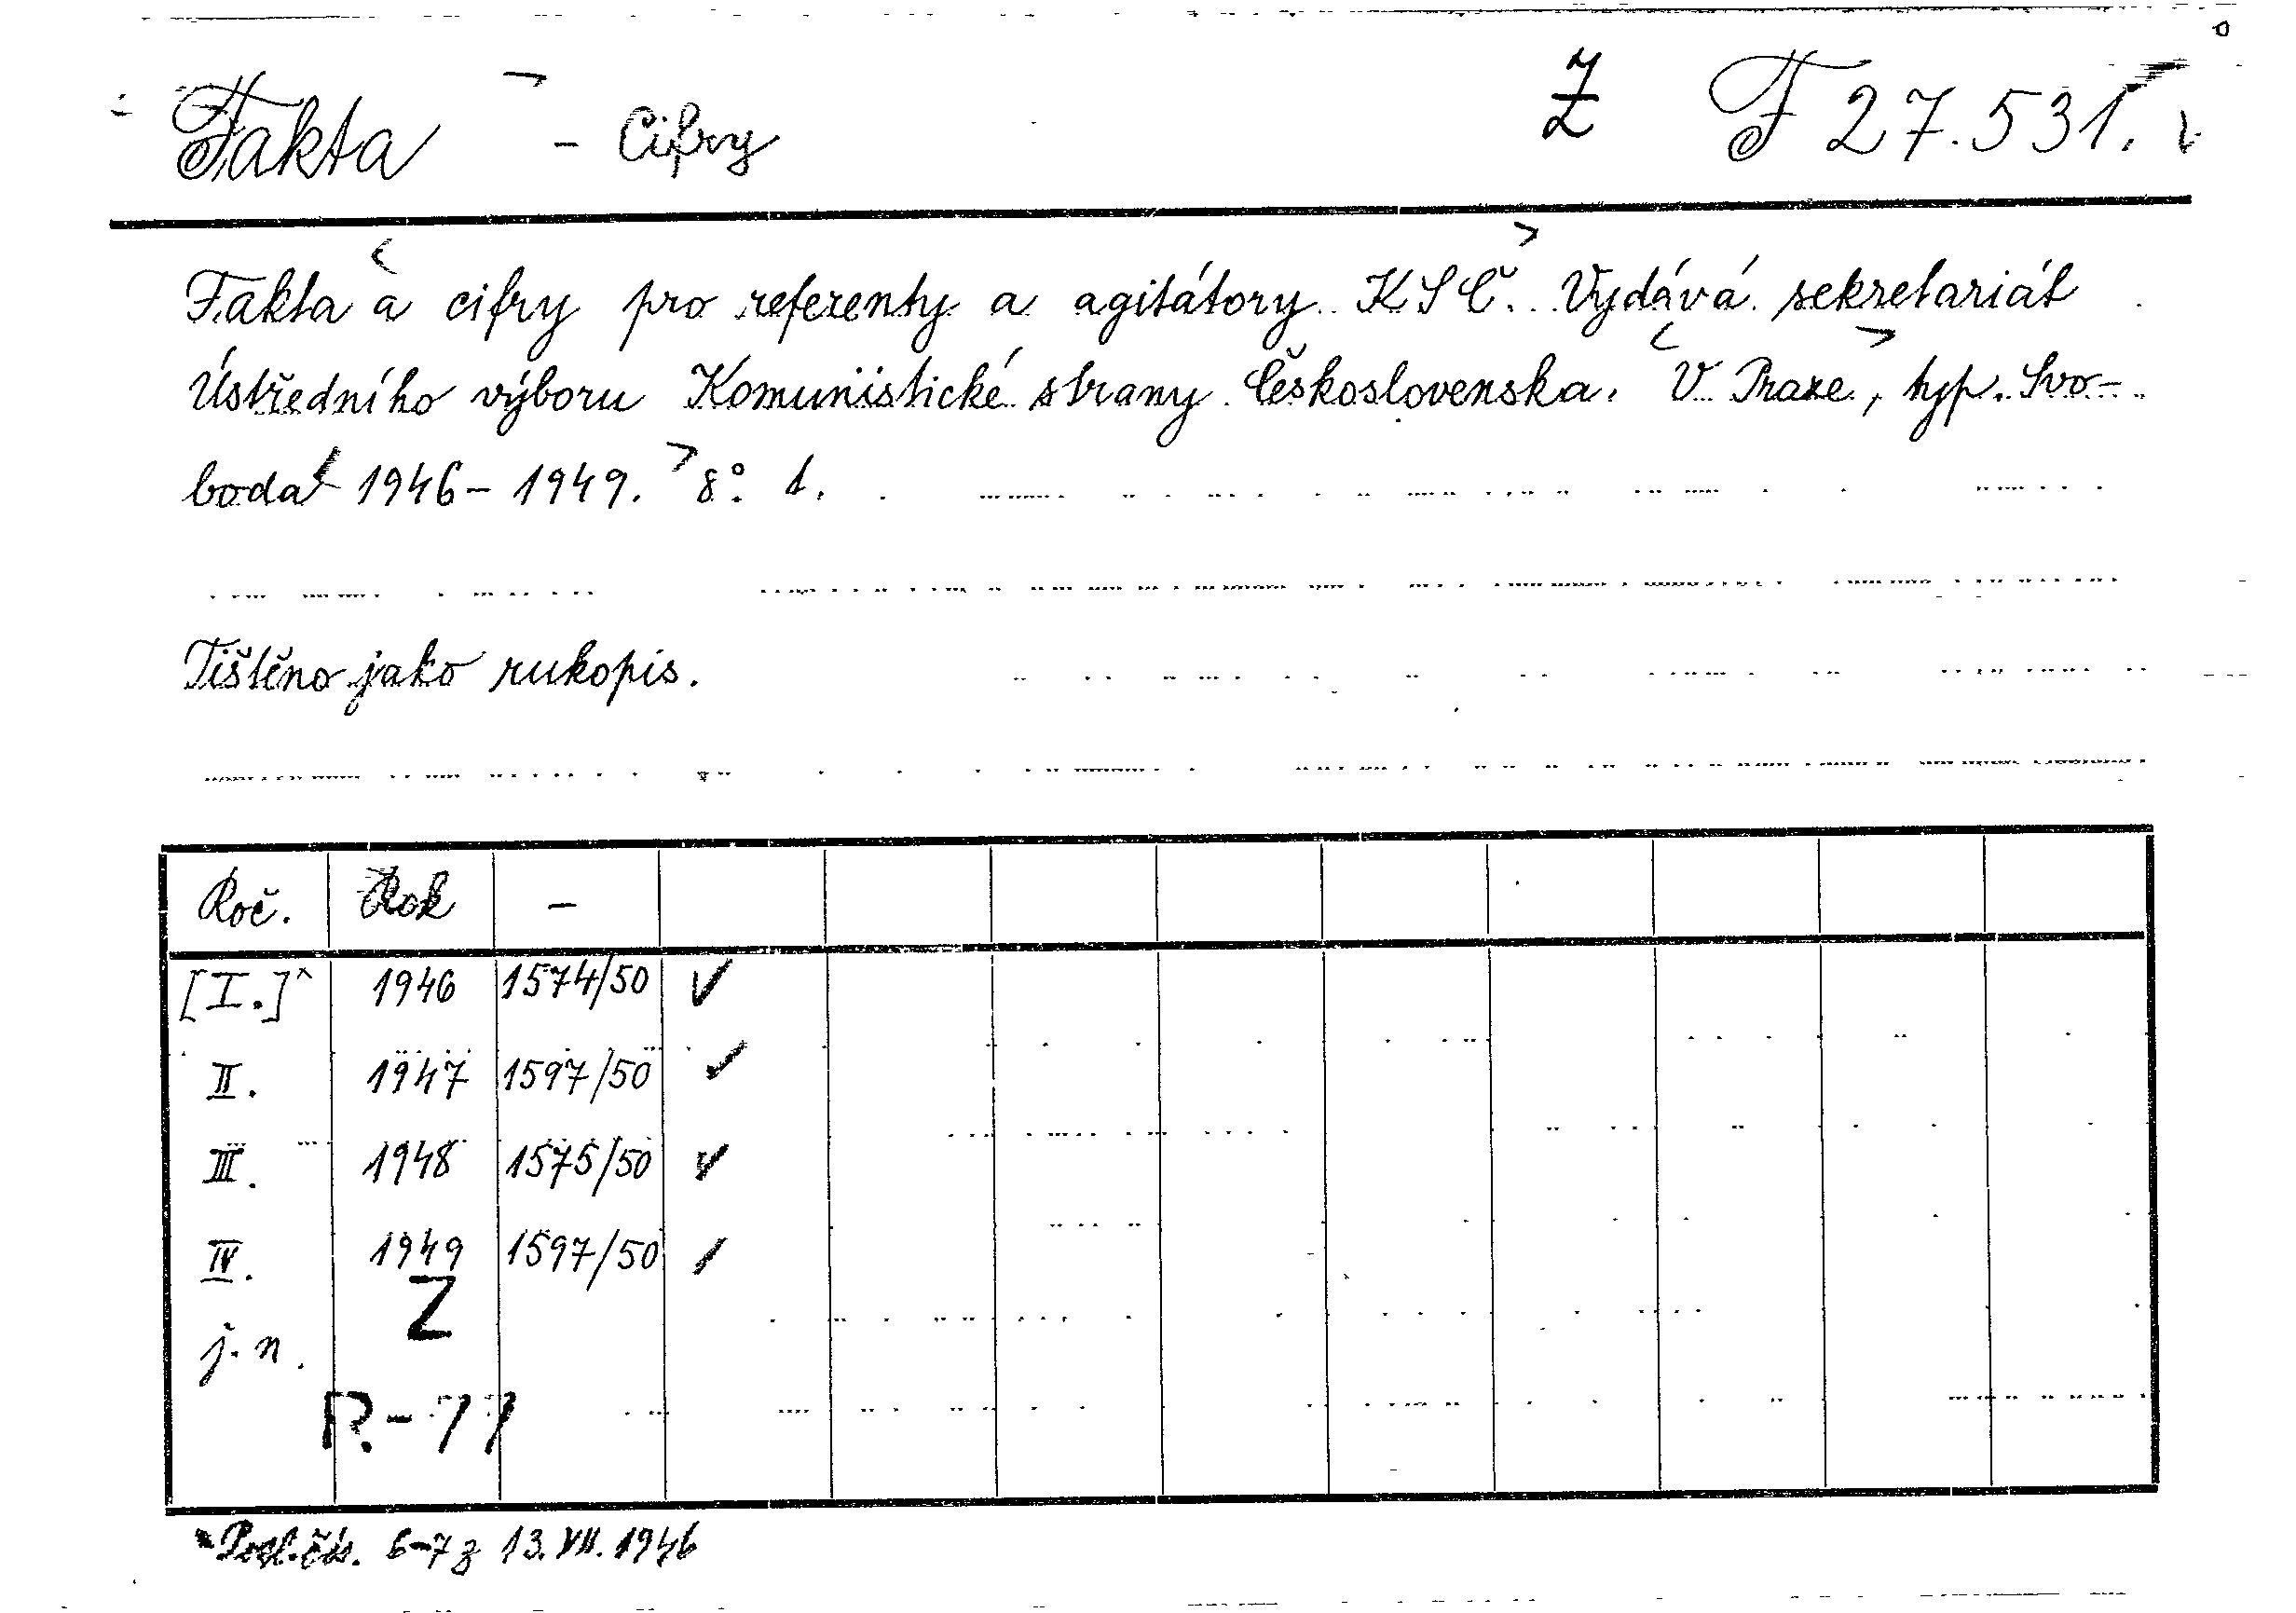 Fakta - Cifry Z F 27.531.
Fakta a cifry pro referenty a agitátory KSČ. Vydává sekretariát
Ústředního výboru Komunistické strany Československa. V Praze, typ. Svo-
boda 1946-1949. 8°.
Tištěno jako rukopis.
Roč. Rok -
[I.]x 1946 1574/50
II. 1947 1597/50
III. 1948 1575/50
IV. 1949 1597/50
Z
j. n.
R-77
x Posl. čís. 6-7 z 13. VII. 1946